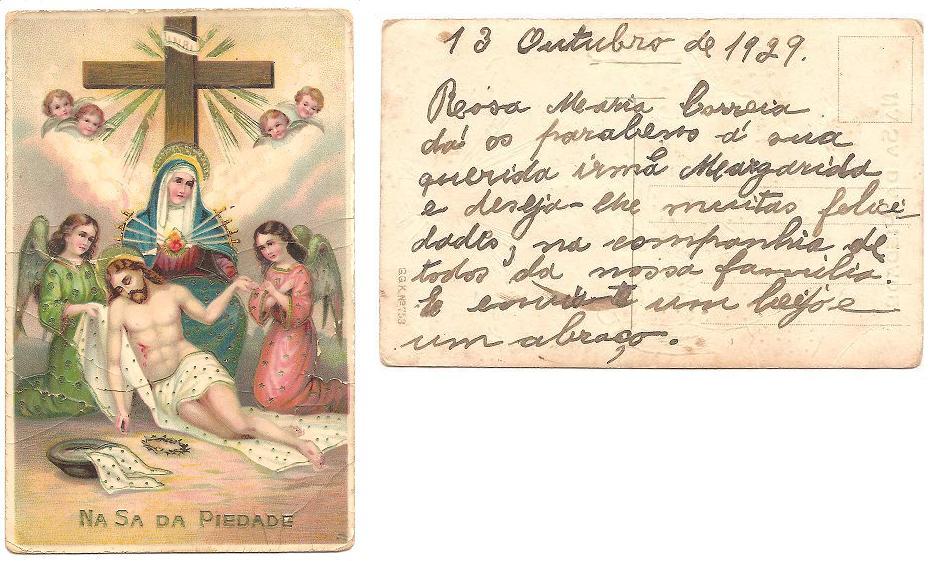 INRI
NA SA DA PIEDADE
13 Outubro de 1929.
Rosa Maria Correia
dá os parabens á sua
querida irmã Margarida
e deseja-lhe muitas felici-
dades, na companhia de
todos da nossa familia.
E envia-te um beijo e
um abraço.